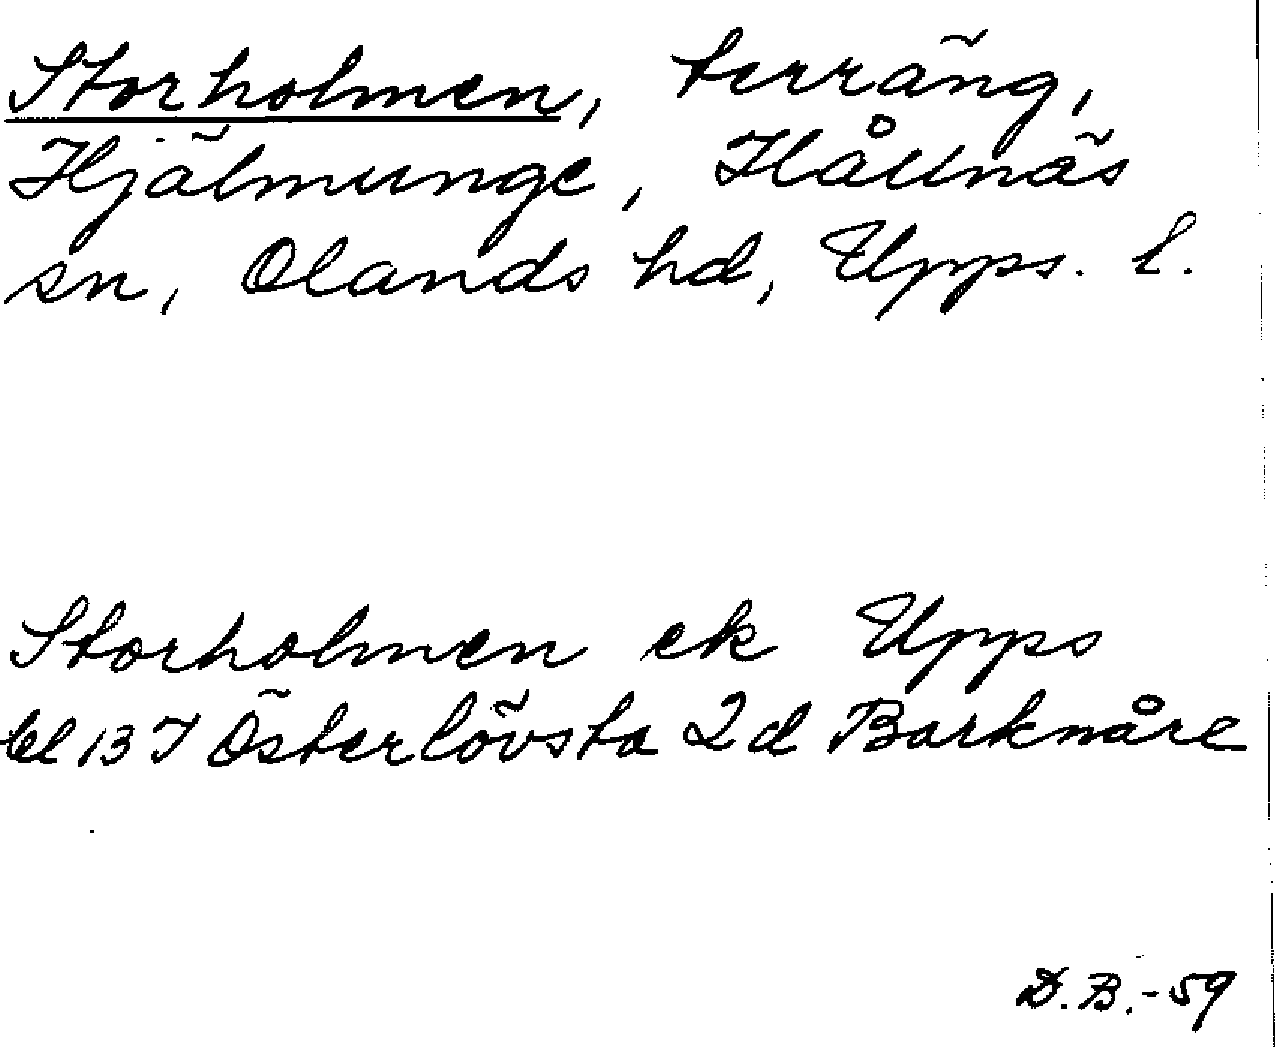 Storholmen, terräng,
Hjälmunge, Hållnäs
sn, Olands hd, Upps. l.
Storholmen ek Upps
bl 13 I Österlövsta 2d Barknåre
D.B.-59